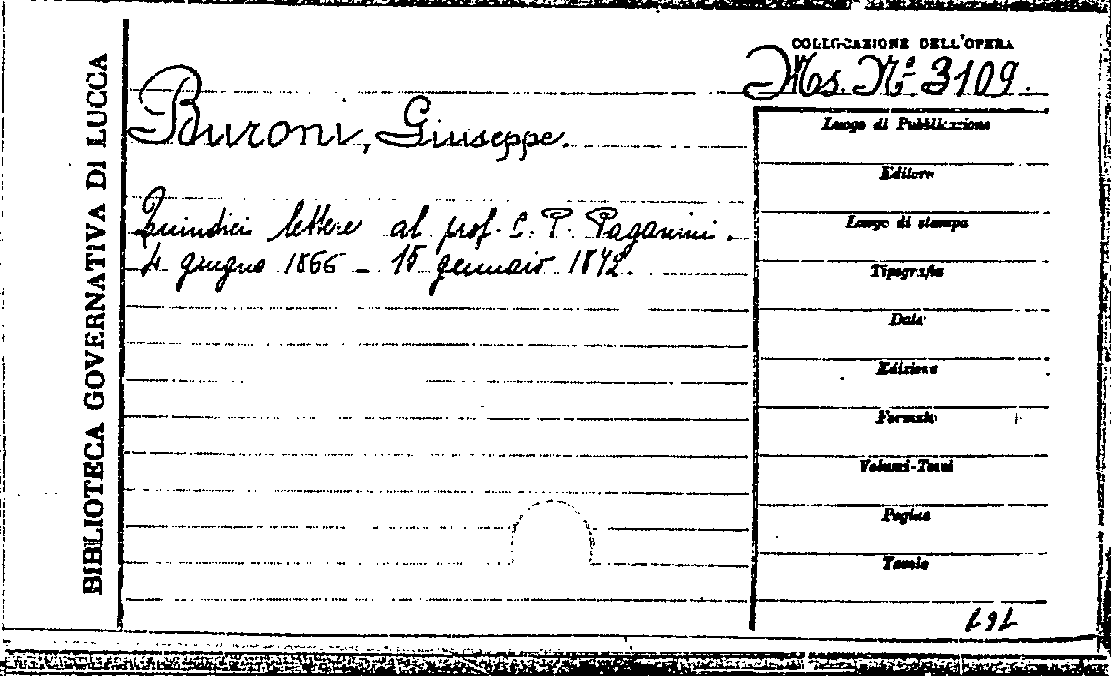 BIBLIOTECA GOVERNATIVA DI LUCCA
COLLOCAZIONE DELL'OPERA
Ms. N.º 3109.
Buroni, Giuseppe.
Quindici lettere al prof. C. P. Paganini.
4 giugno 1866 – 15 gennaio 1872.
Luogo di Pubblicazione
Editore
Luogo di stampa
Tipografia
Data
Edizione
Formato
Volumi-Tomi
Pagine
Tavole